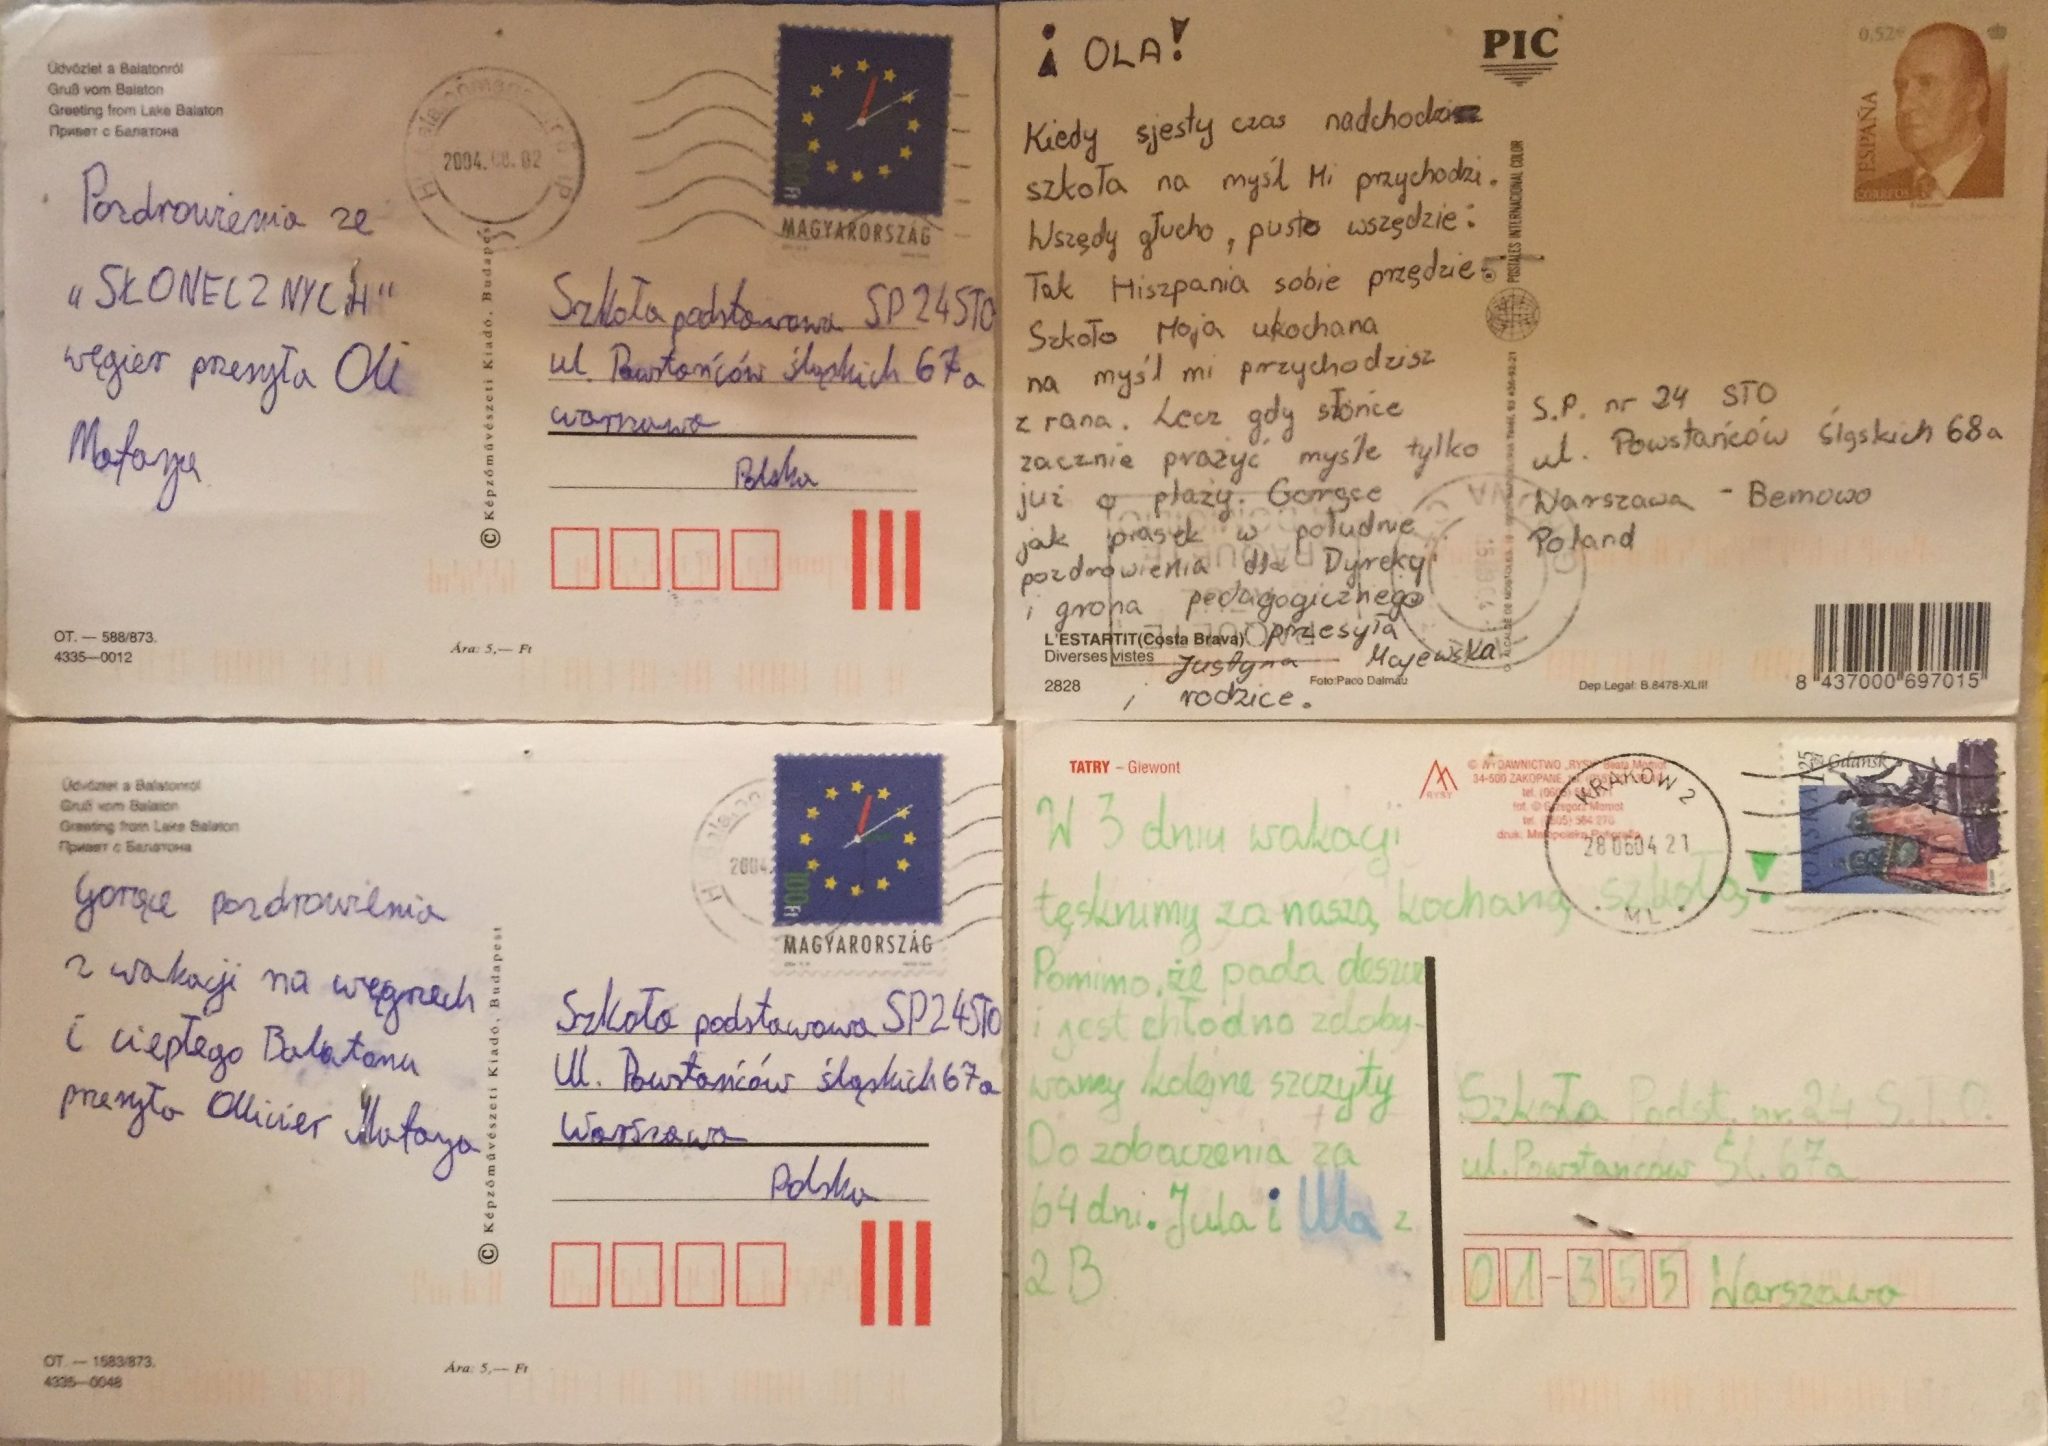 Üdvözlet a Balatonról
Gruß vom Balaton
Greeting from Lake Balaton
Привет с Балатона
2004. 02
MAGYARORSZÁG
Pozdrowienia ze
"SŁONECZNYCH"
węgier przesyła Oli
Mataya
© Képzőművészeti Kiadó, Budapest
Szkoła podstawowa SP24STO
ul. Powstańców śląskich 67a
warszawa
Polska
OT. — 588/873.
4335—0012
Ára: 5,— Ft
¡ OLA!
PIC
0,52€
ESPAÑA
CORREOS
Kiedy sjesty czas nadchodzi
szkoła na myśl Mi przychodzi.
Wszędy głucho, pusto wszędzie:
Tak Hiszpania sobie przędzie.
Szkoło Moja ukochana
na myśl mi przychodzisz
z rana. Lecz gdy słońce
zacznie prażyć myśle tylko
już o plaży. Gorące
jak piasek w południe
pozdrowienia dla Dyrekcji
i grona pedagogicznego
przesyła
Justyna Majewska
i rodzice.
POSTALES INTERNACIONAL COLOR
S.P. nr 24 STO
ul. Powstańców śląskich 68a
Warszawa - Bemowo
Poland
L'ESTARTIT(Costa Brava)
Diverses vistes
2828
Foto:Paco Dalmau
Dep.Legal: B.8478-XLIII
8 437000 697015
Üdvözlet a Balatonról
Gruß vom Balaton
Greeting from Lake Balaton
Привет с Балатона
2004.
100 Ft
MAGYARORSZÁG
Gorące pozdrowienia
z wakacji na węgrzech
i ciepłego Balatonu
przesyła Ollivier Mataya
© Képzőművészeti Kiadó, Budapest
Szkoła podstawowa SP24STO
Ul. Powstańców śląskich 67a
Warszawa
Polska
OT. — 1583/873.
4335—0048
Ára: 5,— Ft
TATRY – Giewont
RYSY
© WYDAWNICTWO „RYSY" Beata Momot
34-500 ZAKOPANE
fot. © Grzegorz Momot
KRAKÓW 2
28 06 04 21
ML
Gdańsk
POLSKA 1,25 zł
W 3 dniu wakacji
tęsknimy za naszą kochaną szkołą!
Pomimo, że pada deszcz
i jest chłodno zdoby-
wamy kolejne szczyty
Do zobaczenia za
64 dni. Jula i Ula z
2B
Szkoła Podst. nr. 24 S.T.O.
ul. Powstańców Śl. 67a
01-355 Warszawa